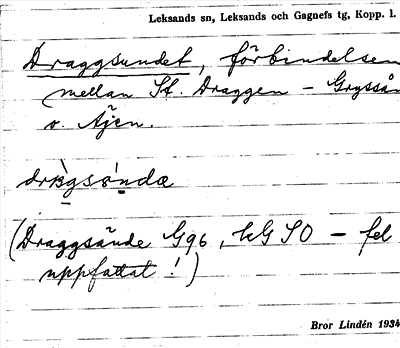 Leksands sn, Leksands och Gagnefs tg, Kopp. l.
Draggsundet, förbindelsen
mellan St. Draggen – Gryssån
o. Äjen.
(Draggsände G96, kG SO – fel
uppfattat!)
Bror Lindén 1934